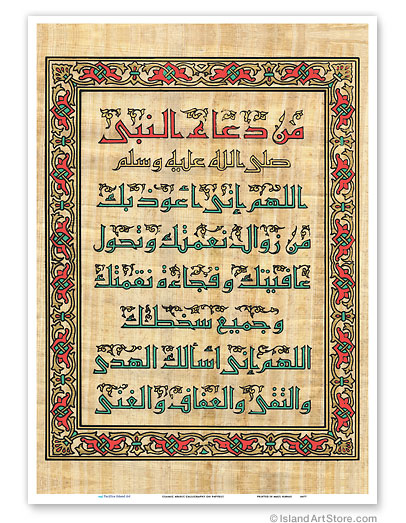 من دعاء النبي
صلى الله عليه وسلم
اللهم إني أعوذ بك
من زوال نعمتك وتحول
عافيتك وفجاءة نقمتك
وجميع سخطك
اللهم إني أسألك الهدى
والتقى والعفاف والغنى
ISLAMIC ARABIC CALLIGRAPHY ON PAPYRUS
© IslandArtStore.com